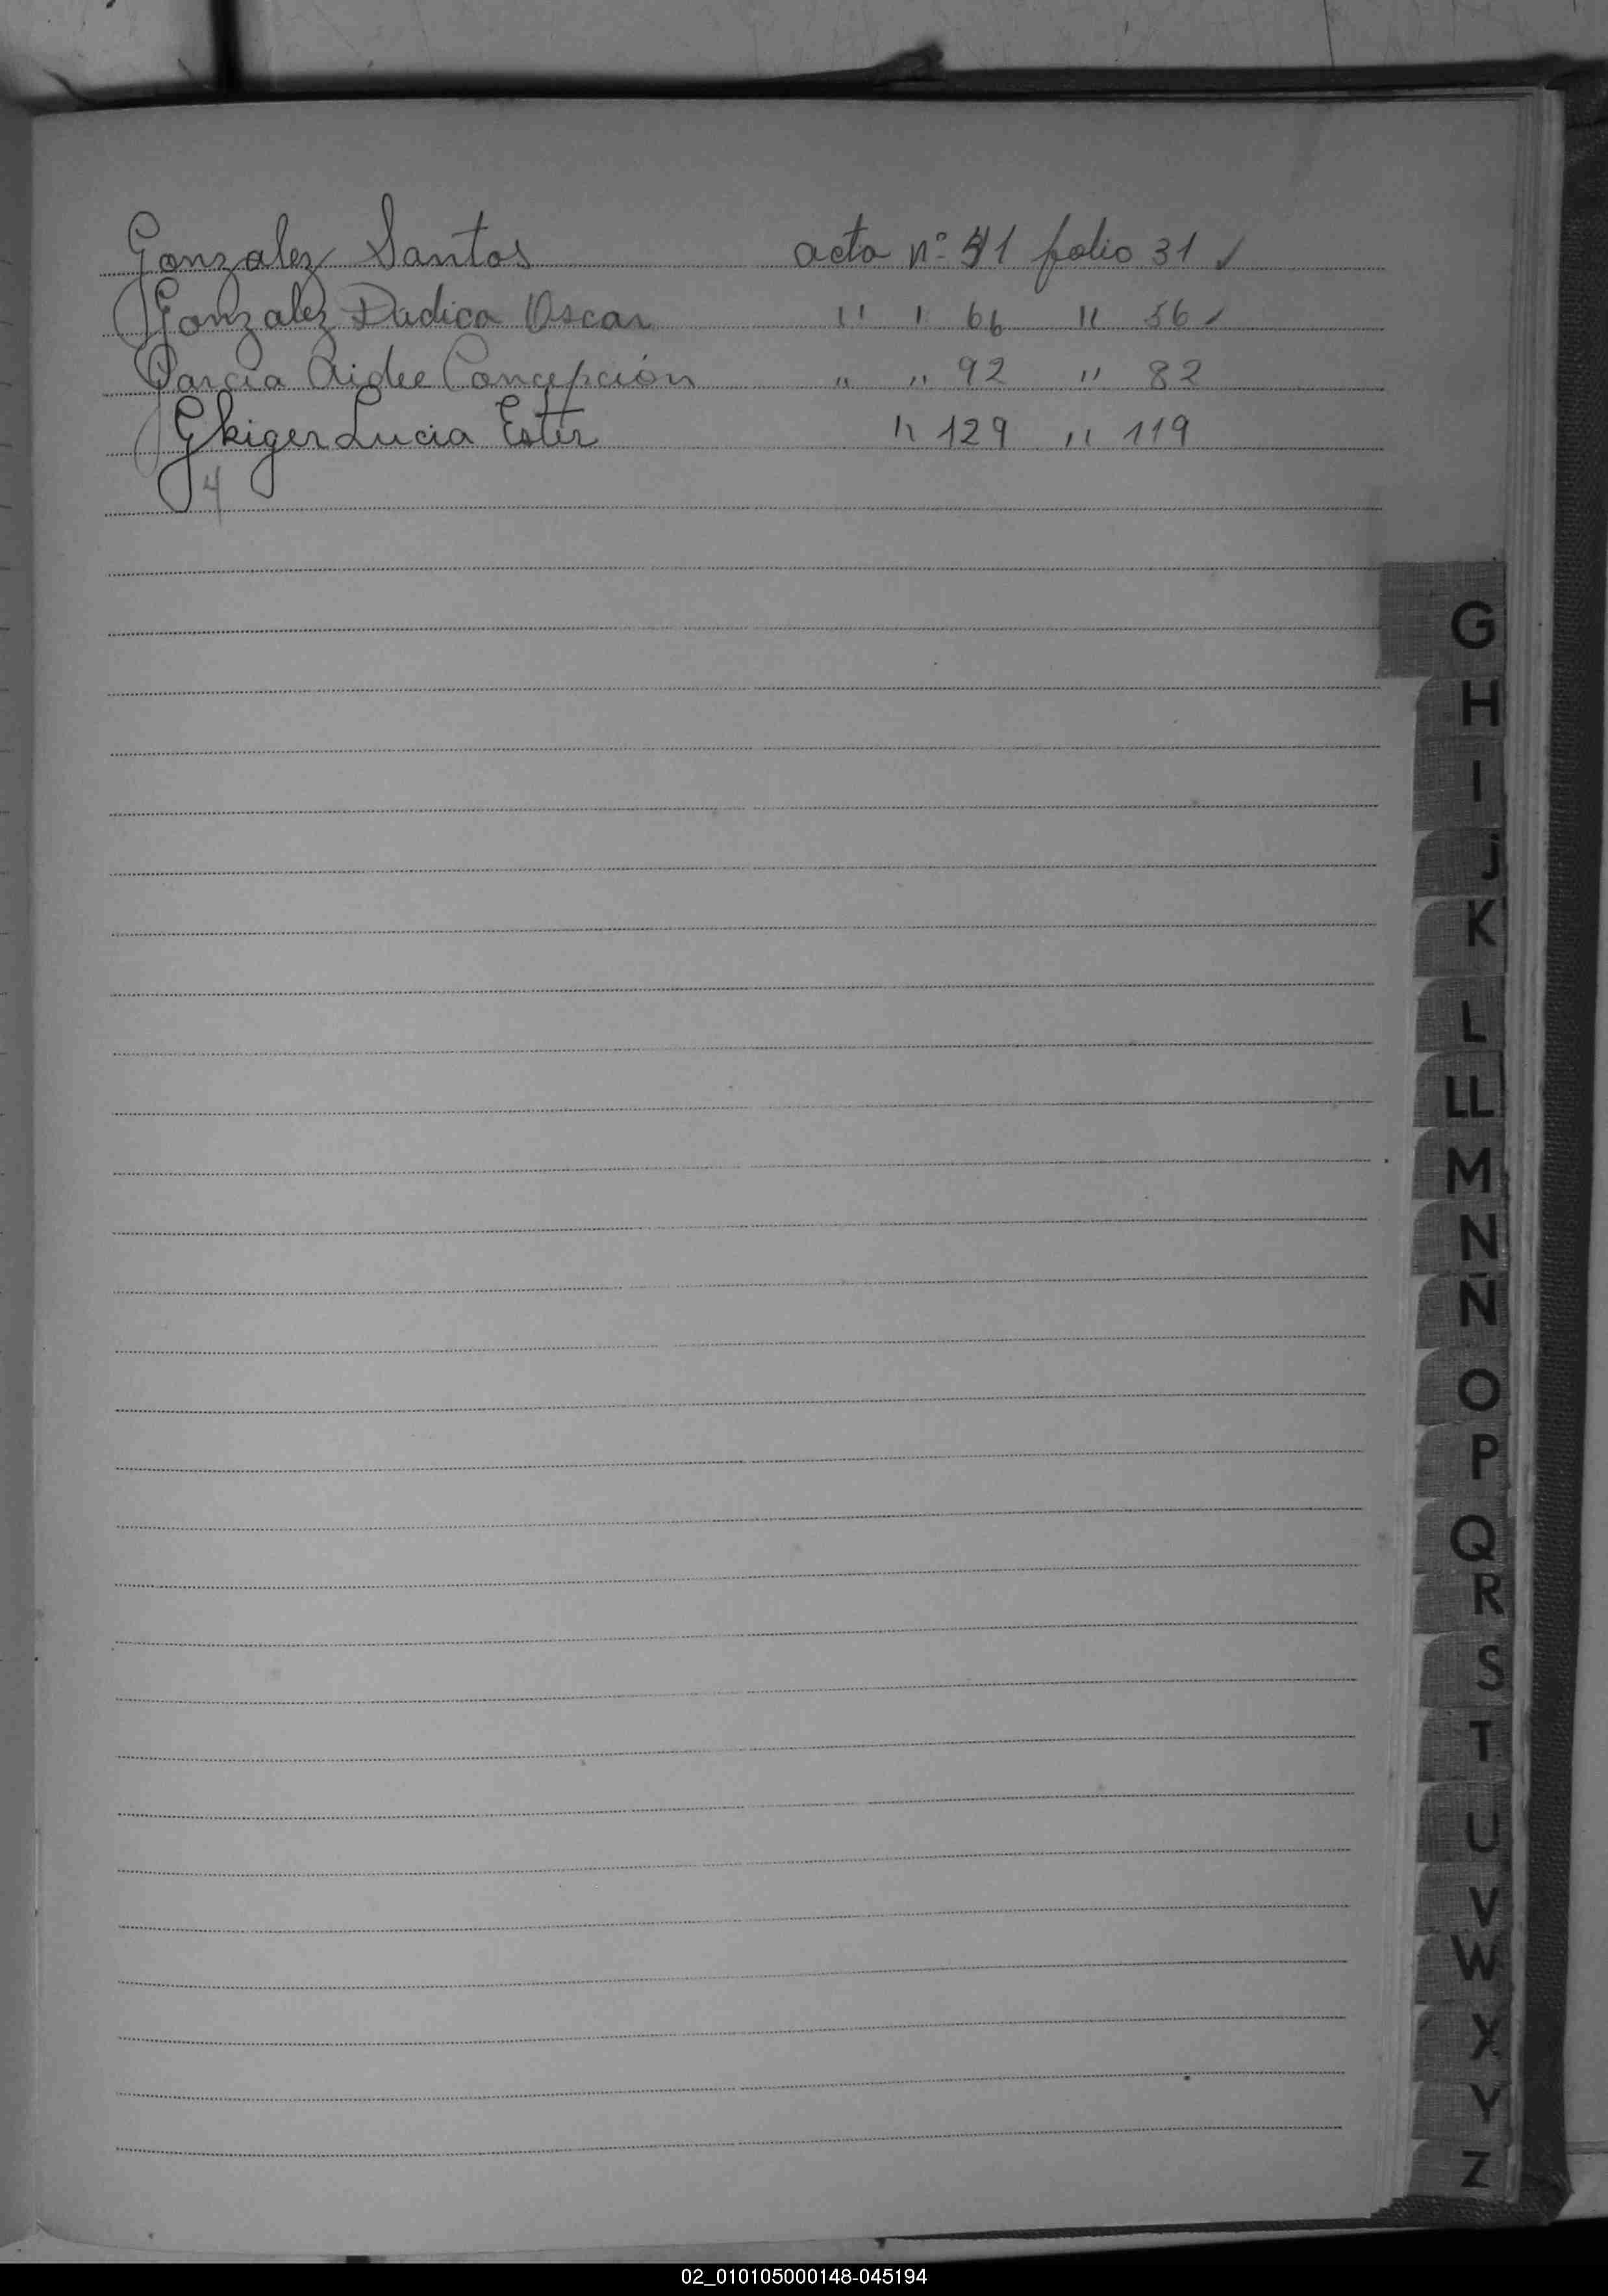 Gonzalez Santos acta nº 41 folio 31 ✓
Gonzalez Dadica Oscar " " 66 " 56 ✓
Garcia Aidee Concepción " " 92 " 82
Gkiger Lucia Ester " 129 " 119
4
G
H
I
J
K
L
LL
M
N
Ñ
O
P
Q
R
S
T
U
V
W
X
Y
Z
02_010105000148-045194